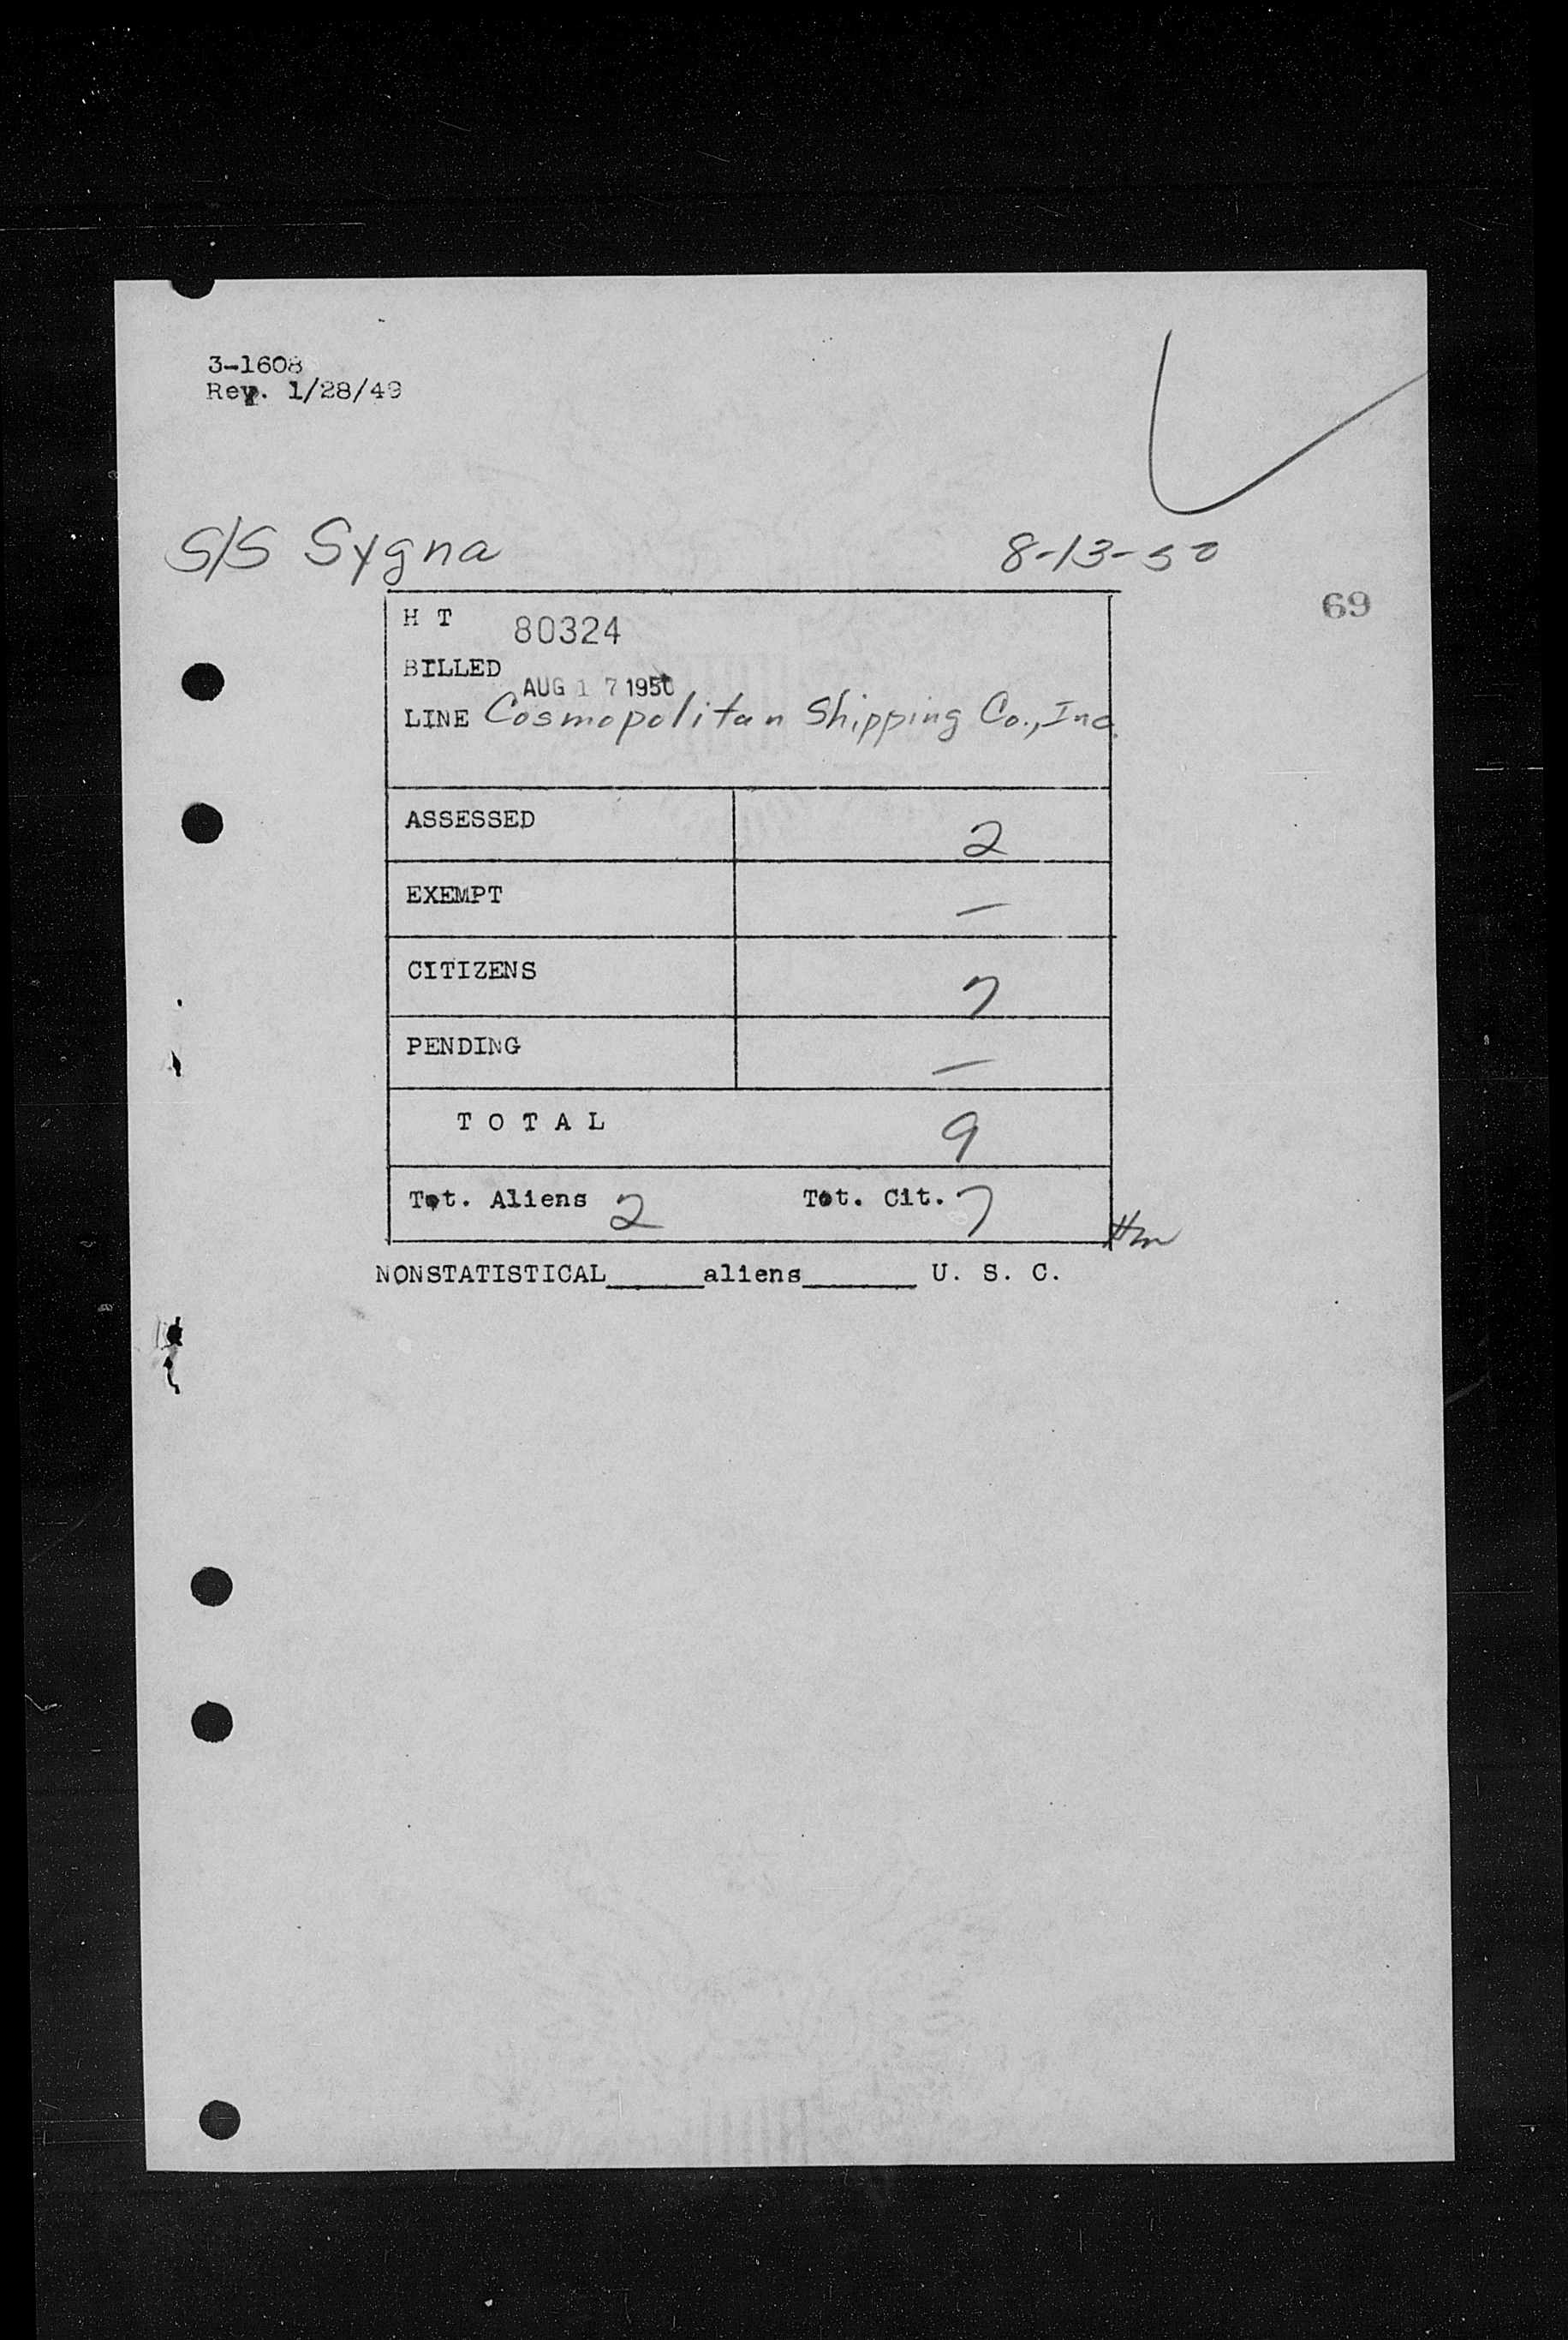 3-1608
Rev. 1/28/49
S/S Sygna 8-13-50
69
H T 80324
BILLED AUG 17 1950
LINE Cosmopolitan Shipping Co., Inc.
ASSESSED 2
EXEMPT —
CITIZENS 7
PENDING —
T O T A L 9
Tot. Aliens 2 Tot. Cit. 7
NONSTATISTICAL______aliens_______ U. S. C.